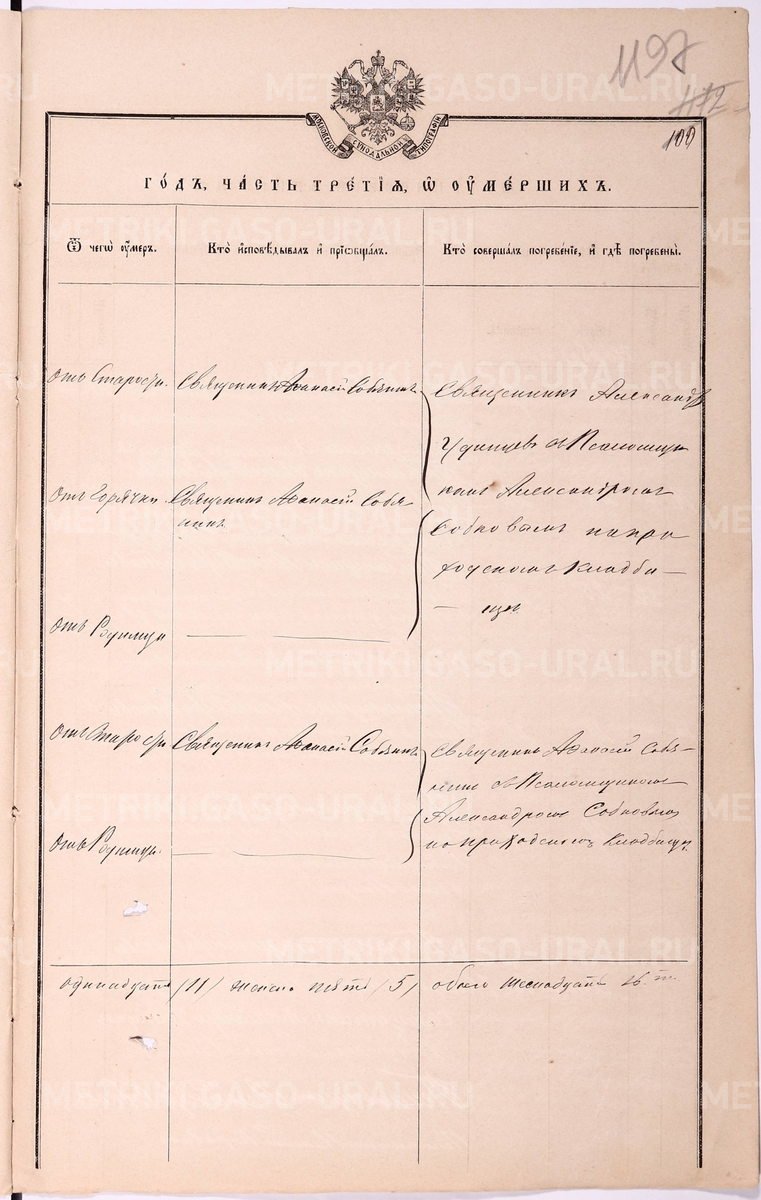 1197
112
109
МОСКОВСКОЙ СѴНОДАЛЬНОЙ ТИПОГРАФІИ
ГО́ДЪ, ЧА́СТЬ ТРЕ́ТІѦ, Ѡ҆ ОУ҆МЕ́РШИХЪ.
Ѿ чегѡ̀ оу҆́меръ.
Кто̀ и҆сповѣ́дывалъ и҆ прїѡбща́лъ.
Кто̀ соверша́лъ погребе́нїе, и҆ гдѣ̀ погребены̀.
Отъ Старости.
Священникъ Аѳанасій Собянинъ
Священникъ Александръ
Удинцевъ съ Псаломщи
комъ Александромъ
Отъ Горячки
Священникъ Аѳанасій Собя-
нинъ
Собковымъ на при
ходскомъ кладби-
щѣ
Отъ Родимца
Отъ Старости
Священникъ Аѳанасій Собянинъ
Священникъ Аѳанасій Собя-
нинъ съ Псаломщикомъ
Александромъ Собковымъ
на приходскомъ кладбищѣ.
Отъ Родимца.
одинадцать /11/ женска пять /5/ обоего шеснадцать 16-ть
METRIKI.GASO-URAL.RU